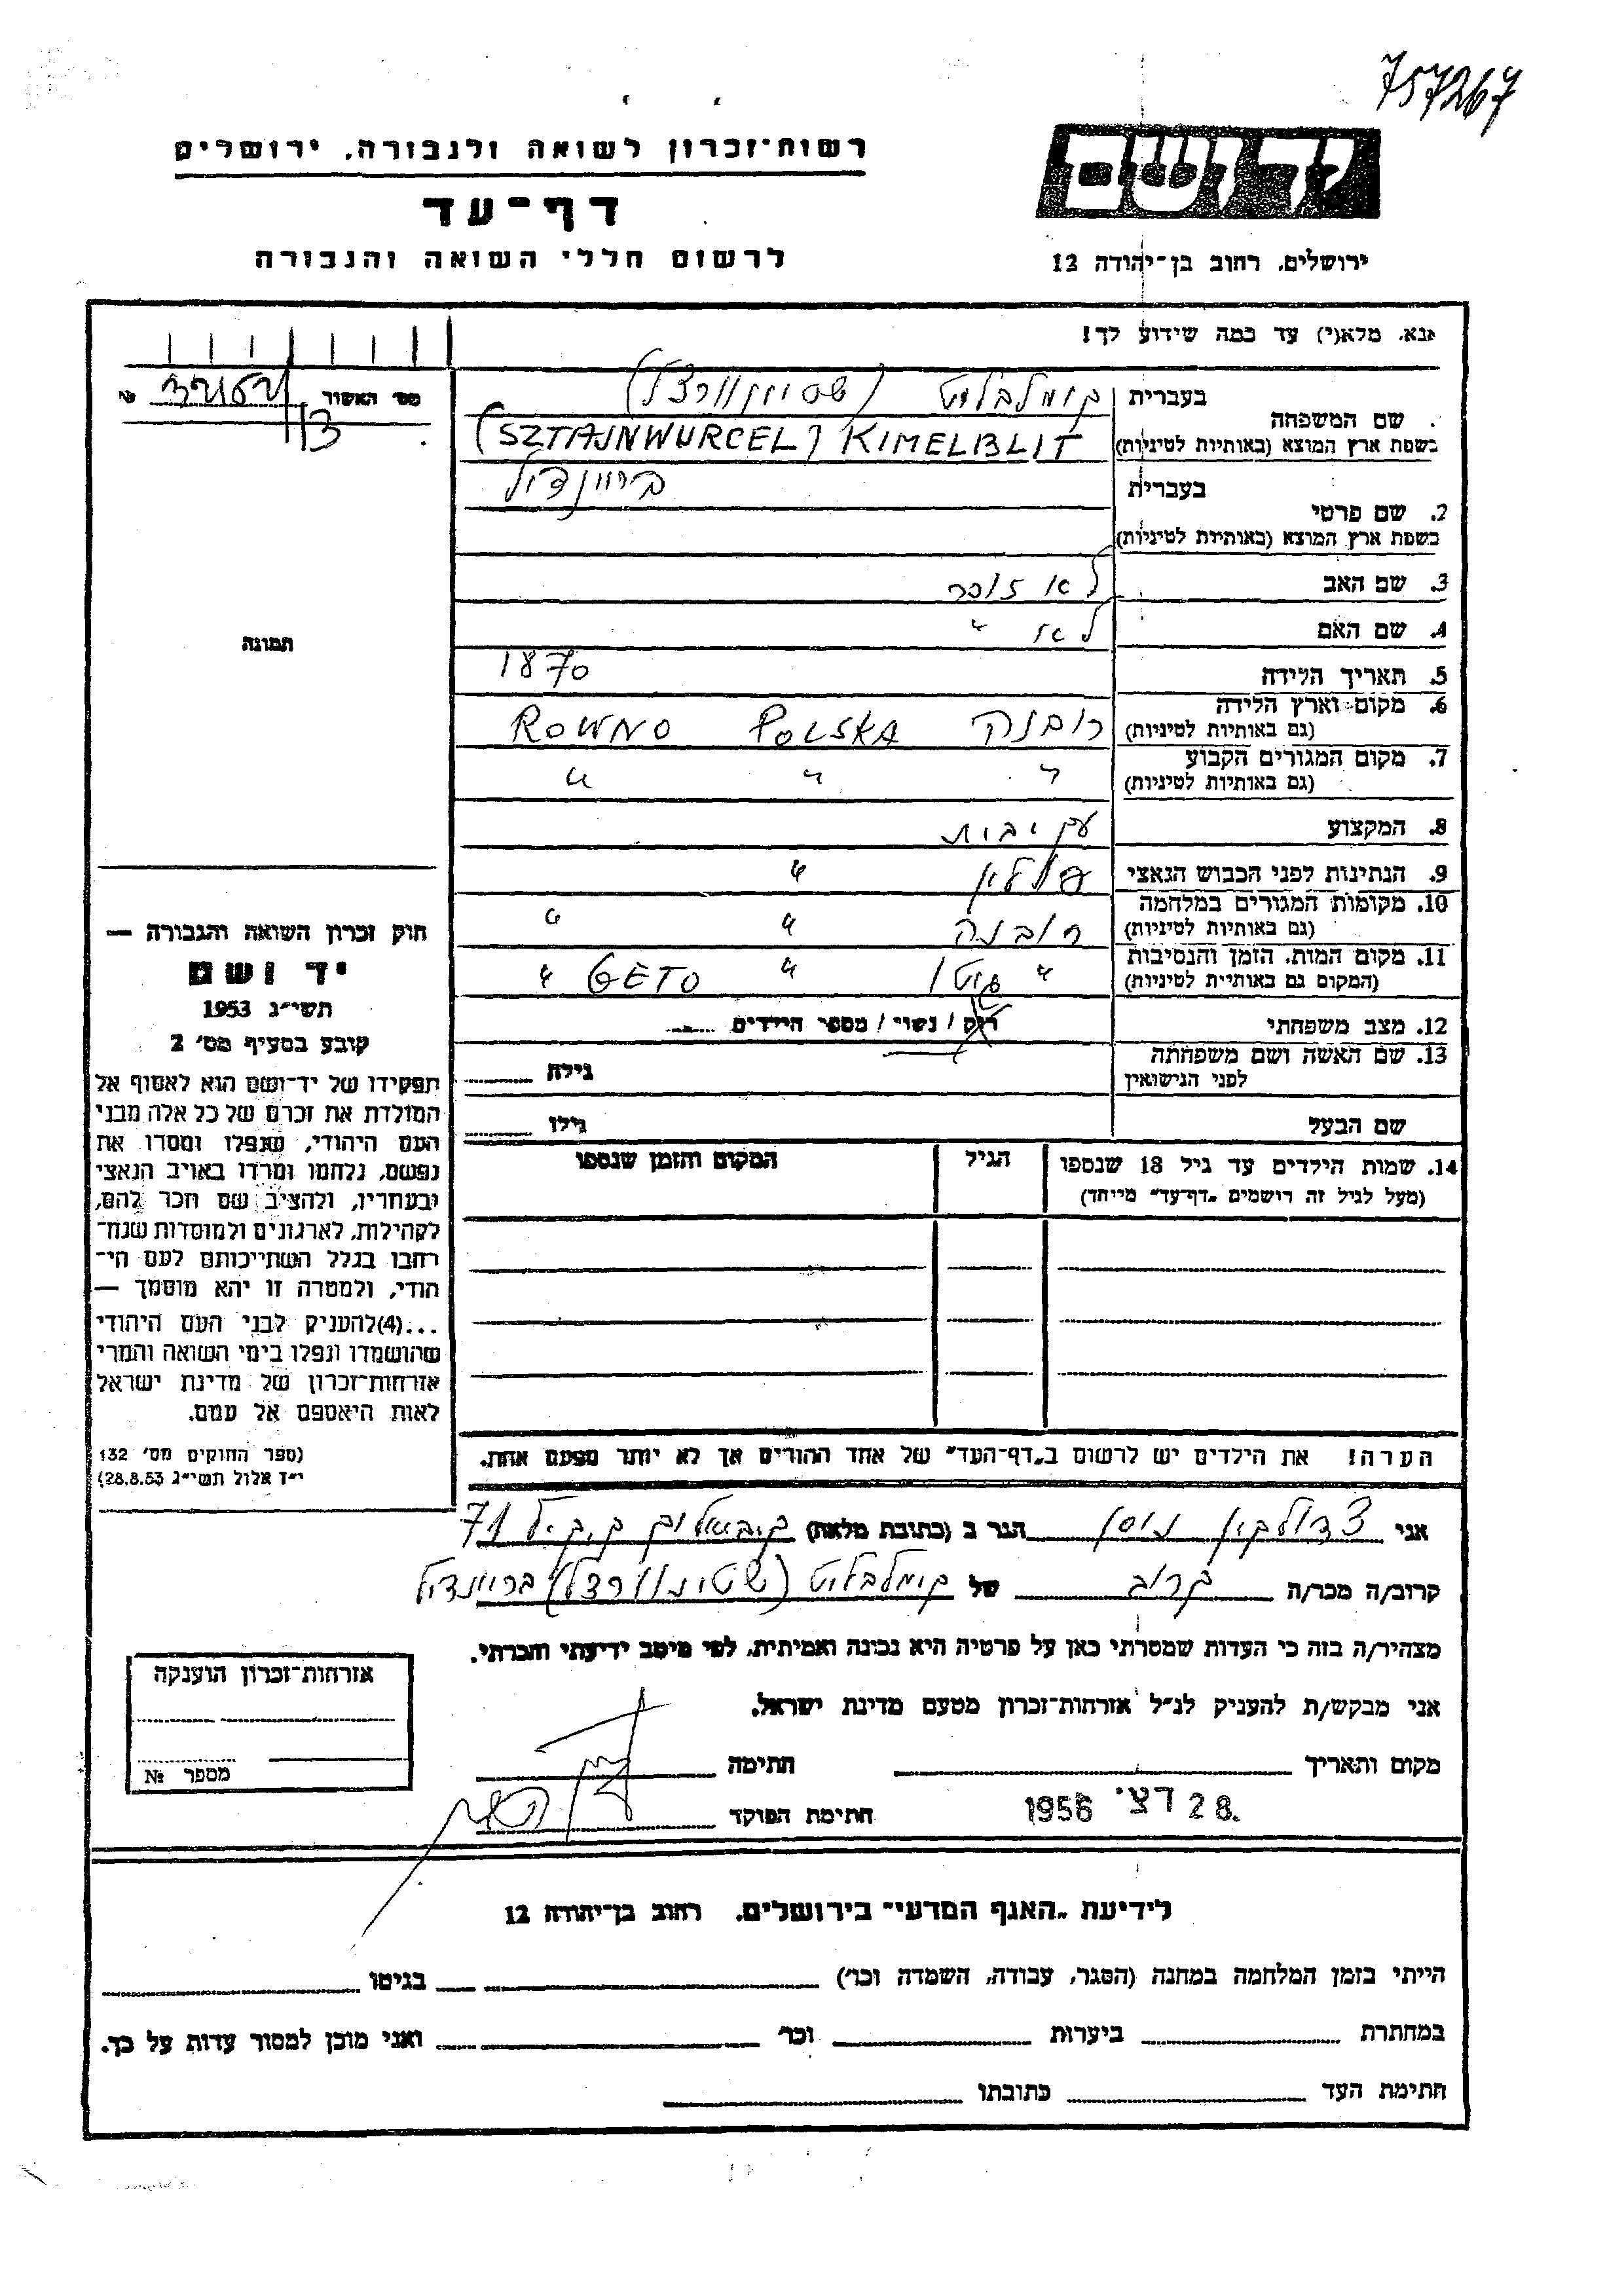 757267
יד ושם
רשות-זכרון לשואה ולגבורה, ירושלים
דף-עד
לרשום חללי השואה והגבורה
ירושלים, רחוב בן-יהודה 12
אנא, מלא(י) עד כמה שידוע לך!
מס' האשור №
13
בעברית
שם המשפחה
קימלבליט (שטיינוורצל)
בשפת ארץ המוצא (באותיות לטיניות)
(SZTAJNWURCEL) KIMELBLIT
2. שם פרטי
בעברית
בריינדיל
בשפת ארץ המוצא (באותיות לטיניות)
3. שם האב לא זוכר
4. שם האם לא "
5. תאריך הלידה 1870
6. מקום וארץ הלידה
(גם באותיות לטיניות)
רובנה POLSKA ROWNO
7. מקום המגורים הקבוע
(גם באותיות לטיניות)
" " "
8. המקצוע עק יבית
9. הנתינות לפני הכבוש הנאצי פולין "
10. מקומות המגורים במלחמה
(גם באותיות לטיניות)
רובנה " "
11. מקום המות, הזמן והנסיבות
(המקום גם באותיות לטיניות)
" גיטו " GETO "
12. מצב משפחתי רוק / נשוי / מספר הילדים
13. שם האשה ושם משפחתה
לפני הנישואין
גילה
שם הבעל גילו
14. שמות הילדים עד גיל 18 שנספו
(מעל לגיל זה רושמים "דף-עד" מיוחד)
הגיל
המקום והזמן שנספו
הערה! את הילדים יש לרשום ב"דף-העד" של אחד ההורים אך לא יותר מפעם אחת.
תמונה
חוק זכרון השואה והגבורה —
יד ושם
תשי"ג 1953
קובע בסעיף מס' 2
תפקידו של יד-ושם הוא לאסוף אל
המולדת את זכרם של כל אלה מבני
העם היהודי, שנפלו ומסרו את
נפשם, נלחמו ומרדו באויב הנאצי
ובעוזריו, ולהציב שם וזכר להם,
לקהילות, לארגונים ולמוסדות שנח-
רבו בגלל השתייכותם לעם הי-
הודי, ולמטרה זו יהא מוסמך —
...(4)להעניק לבני העם היהודי
שהושמדו ונפלו בימי השואה והמרי
אזרחות-זכרון של מדינת ישראל
לאות היאספם אל עמם.
(ספר החוקים מס' 132
י"ז אלול תשי"ג 28.8.53)
אני ניסן הגר ב (כתובת מלאה) 71
קרוב/ה מכר/ה קרוב של קימלבליט (שטיינוורצל) בריינדיל
מצהיר/ה בזה כי העדות שמסרתי כאן על פרטיה היא נכונה ואמיתית, לפי מיטב ידיעתי והכרתי.
אני מבקש/ת להעניק לנ"ל אזרחות-זכרון מטעם מדינת ישראל.
מקום ותאריך חתימה
28. דצי 1956
חתימת הפוקד
אזרחות-זכרון הוענקה
מספר №
לידיעת "האגף המדעי" בירושלים, רחוב בן-יהודה 12
הייתי בזמן המלחמה במחנה (הסגר, עבודה, השמדה וכר') בגיטו
במחתרת ביערות וכר' ואני מוכן למסור עדות על כך.
חתימת העד כתובתו